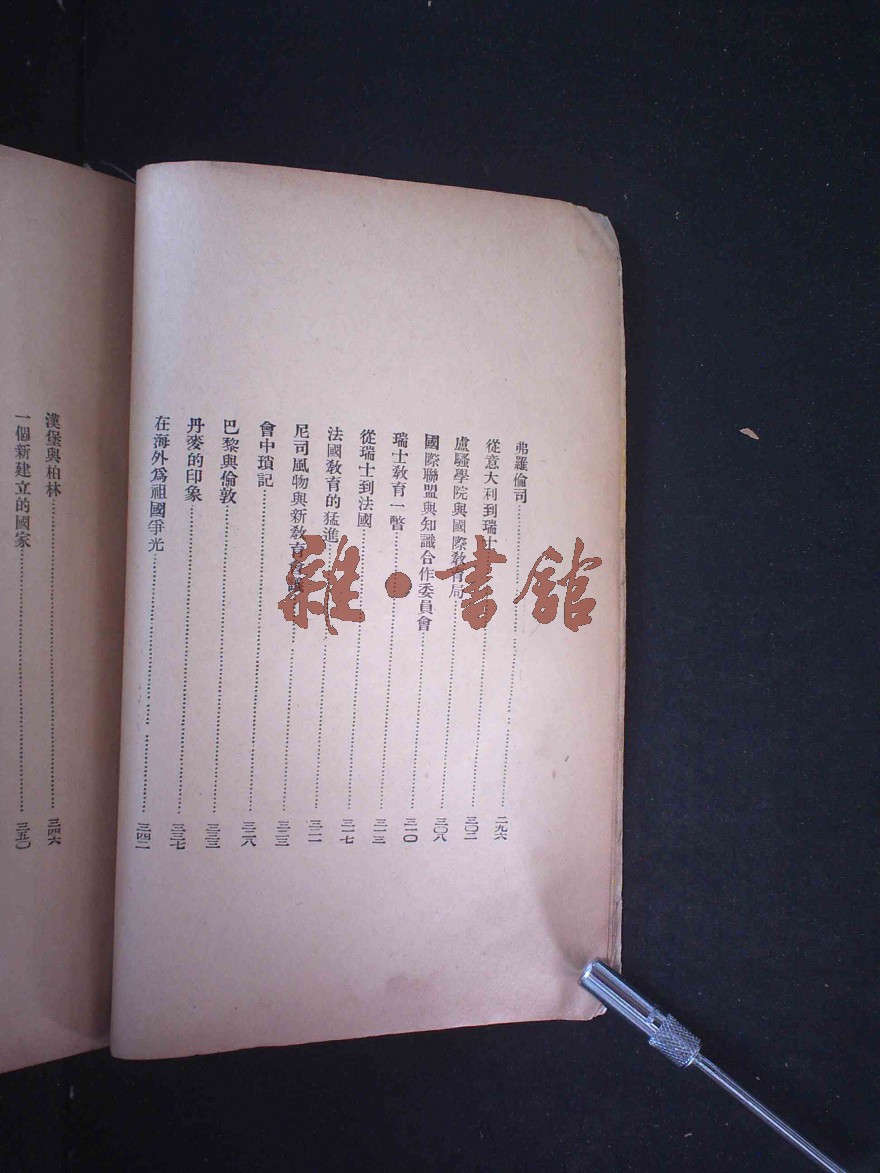 弗羅倫司……二九六
從意大利到瑞士……三〇二
盧騷學院與國際教育局……三〇八
國際聯盟與知識合作委員會……三一〇
瑞士教育一瞥……三一三
從瑞士到法國……三一七
法國教育的猛進……三二一
尼司風物與新教育會議……三二三
會中瑣記……三二八
巴黎與倫敦……三三三
丹麥的印象……三三七
在海外爲祖國爭光……三四二
漢堡與柏林……三四六
一個新建立的國家……三五〇
雜·書館